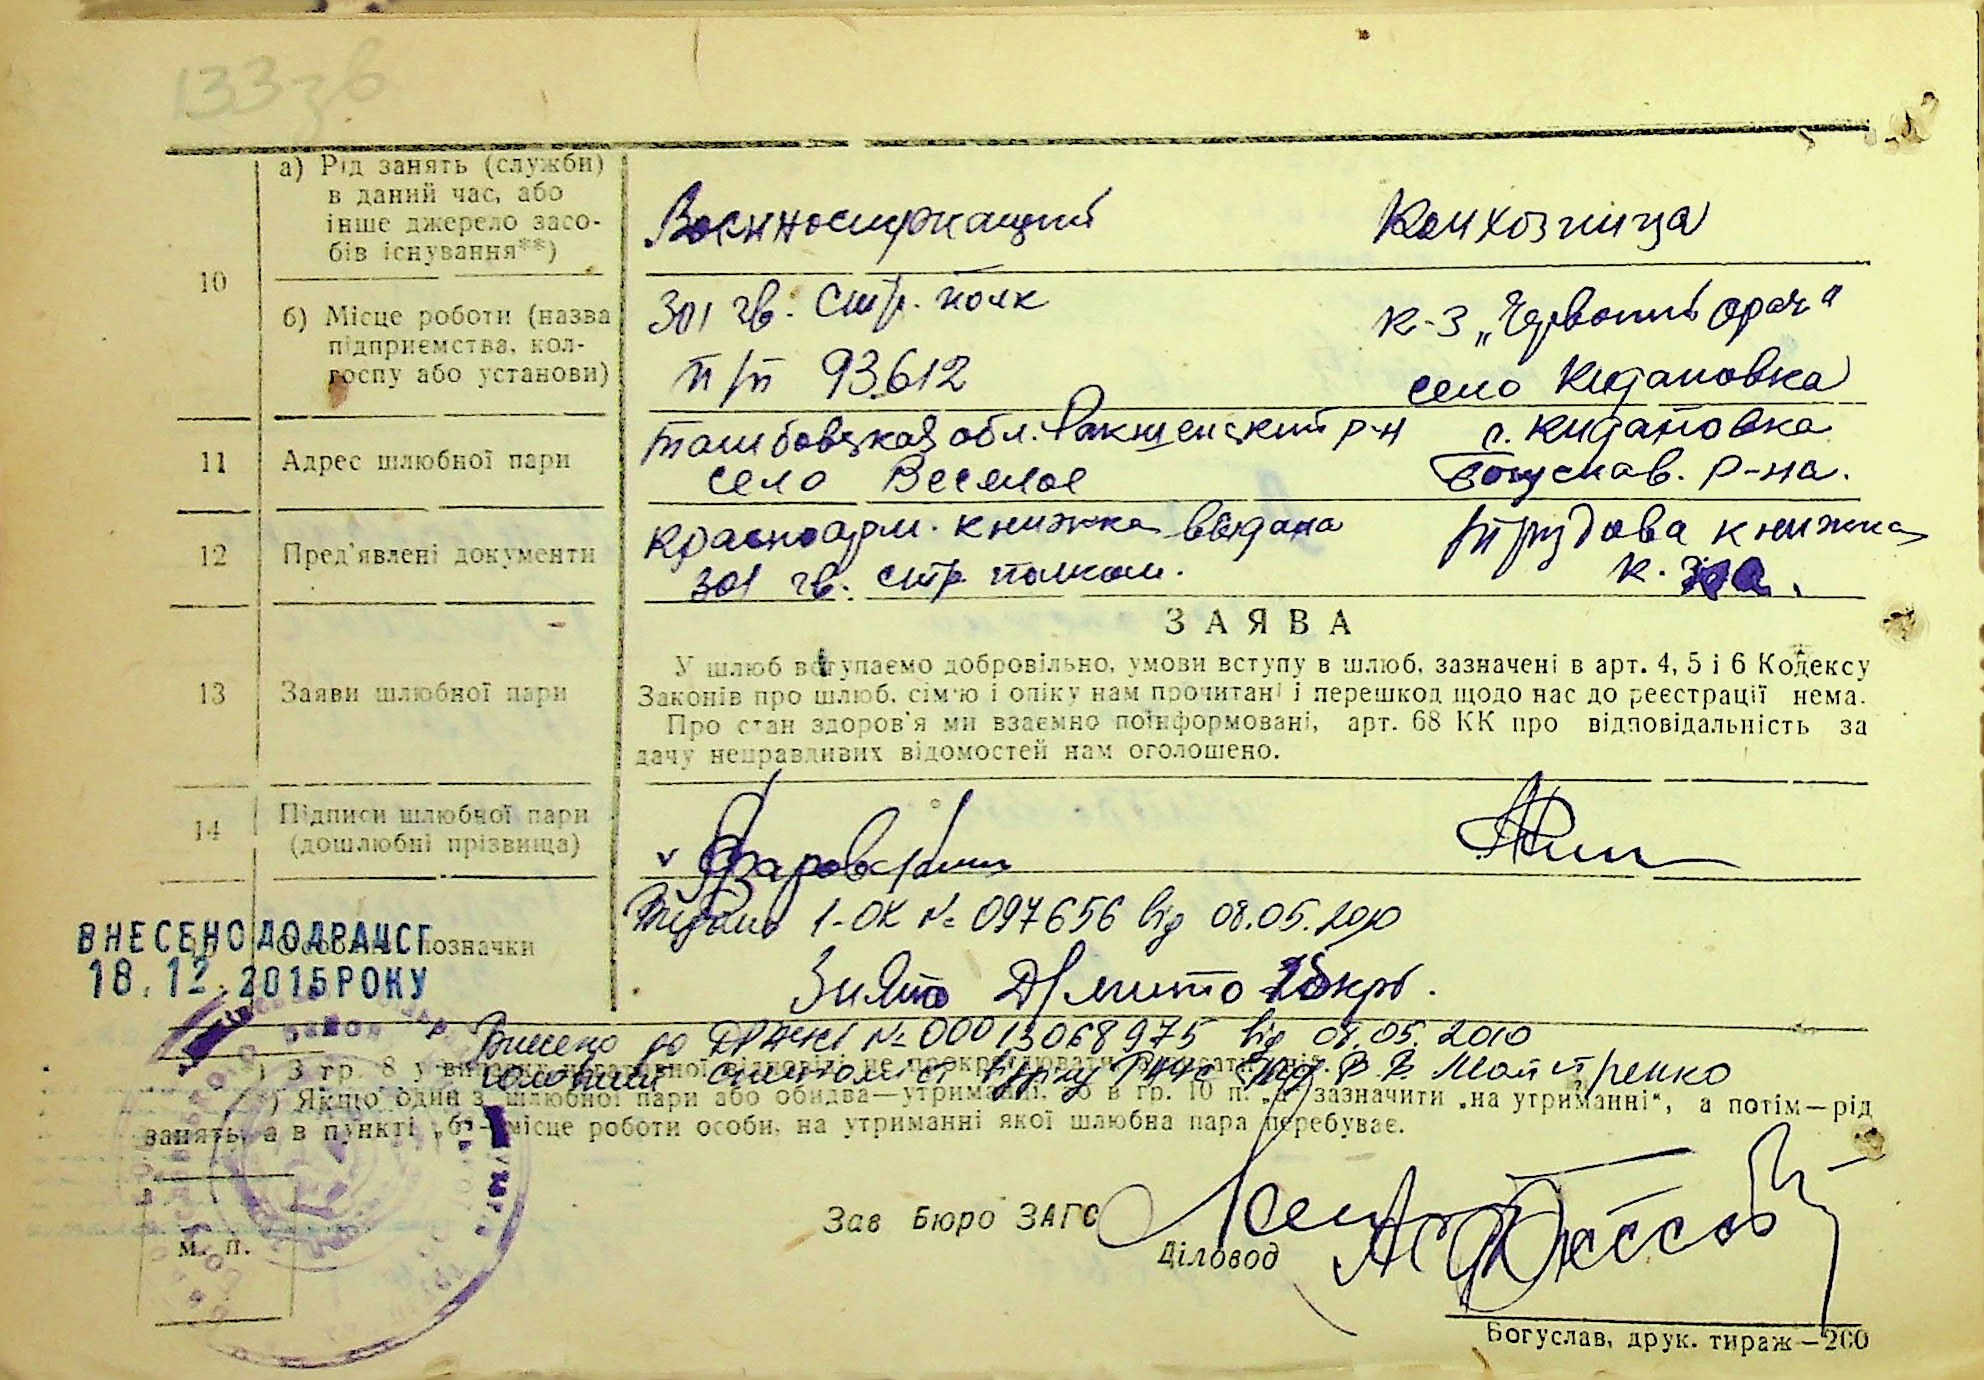 133 зв
10
а) Рід занять (служби)
в даний час, або
інше джерело засо-
бів існування**)
Военнослужащий
Колхозница
б) Місце роботи (назва
підприємства, кол-
госпу або установи)
301 гв. стр. полк
п/п 93612
к-з „Червоний орач"
село Кидановка
11
Адрес шлюбної пари
Тамбовская обл. Ракшенский р-н
село Веселое
с. Кидановка
Богуслав. р-на.
12
Пред'явлені документи
Красноарм. книжка выдана
301 гв. стр. полком.
Трудова книжка
к.
ЗАЯВА
13
Заяви шлюбної пари
У шлюб вступаємо добровільно, умови вступу в шлюб, зазначені в арт. 4, 5 і 6 Кодексу
Законів про шлюб, сім'ю і опіку нам прочитані і перешкод щодо нас до реєстрації нема.
Про стан здоров'я ми взаємно поінформовані, арт. 68 КК про відповідальність за
дачу неправдивих відомостей нам оголошено.
14
Підписи шлюбної пари
(дошлюбні прізвища)
v
Видано 1-ОК № 097656 від 08.05.2010
ВНЕСЕНО ДО ДРАЦСГ
18.12.2015 РОКУ
позначки
Знято
Внесено до № 00013068975 від 08.05.2010
З гр. 8 у випадку
головний спеціаліст В. В. Майстренко
Якщо один з шлюбної пари або обидва—утриманні, то в гр. 10 п. „а" зазначити „на утриманні", а потім—рід
занять, а в пункті „б"—місце роботи особи, на утриманні якої шлюбна пара перебуває.
Зав Бюро ЗАГС
Діловод
М. П.
Богуслав, друк. тираж—200